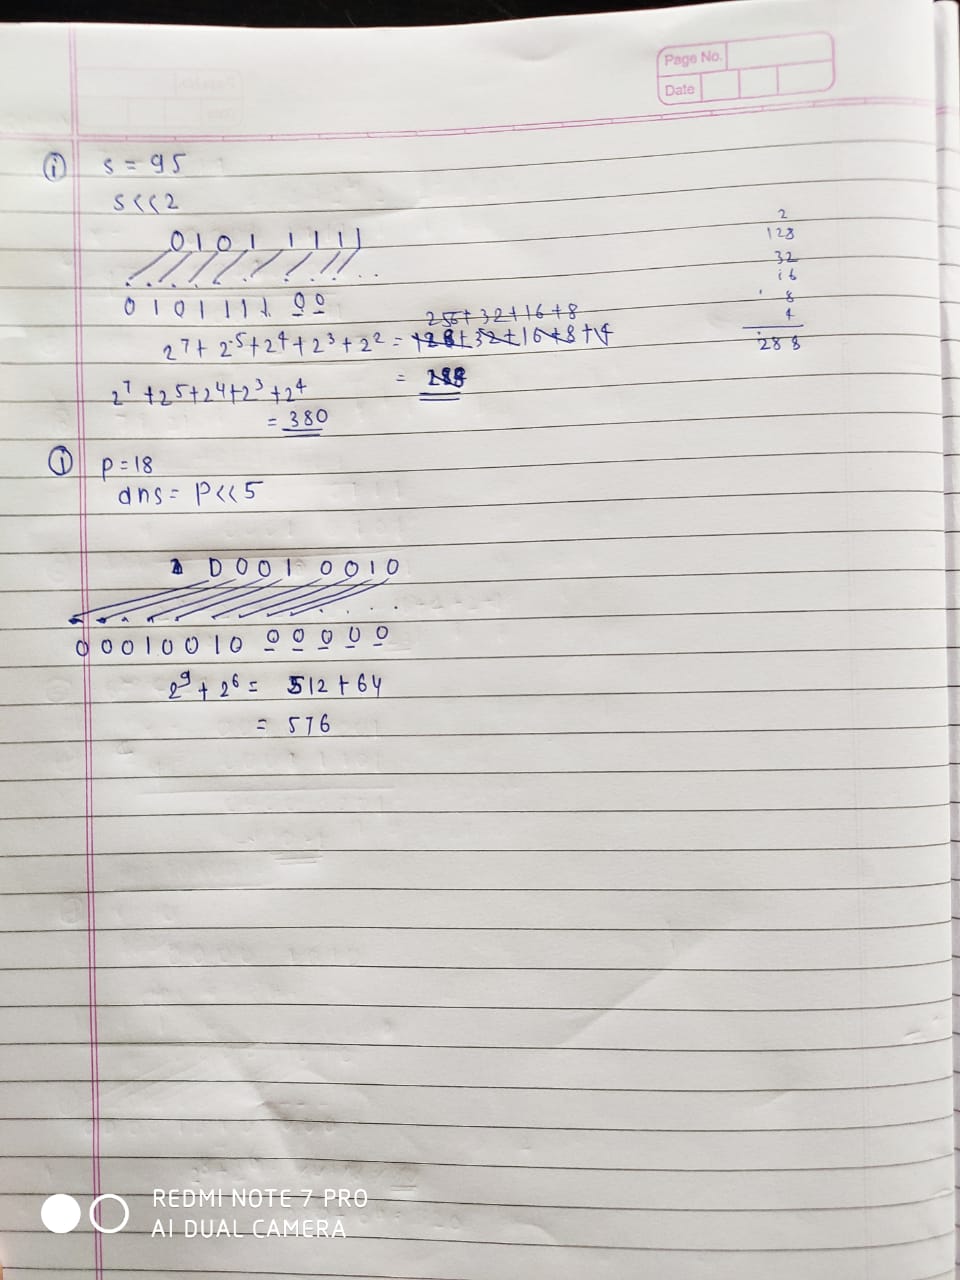 Page No.
Date
i s = 95
s<<2
0101 1111
0101111 00
256+32+16+8
2⁷+2⁵+2⁴+2³+2² = 128+32+16+8+4
=
2⁷+2⁵+2⁴+2³+2⁴
= 380
2
128
32
16
8
4
288
i p=18
ans = P<<5
0001 0010
0001 0010 00000
2⁹+2⁶ = 512+64
= 576
REDMI NOTE 7 PRO
AI DUAL CAMERA